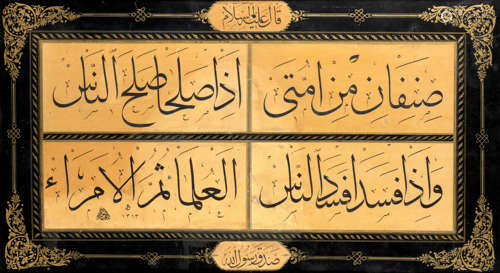 قال عليه السلام
صنفان من امتى اذا صلحا صلح الناس
واذا فسدا فسد الناس العلماء ثم الامراء
١٣١٣
صدق رسول الله